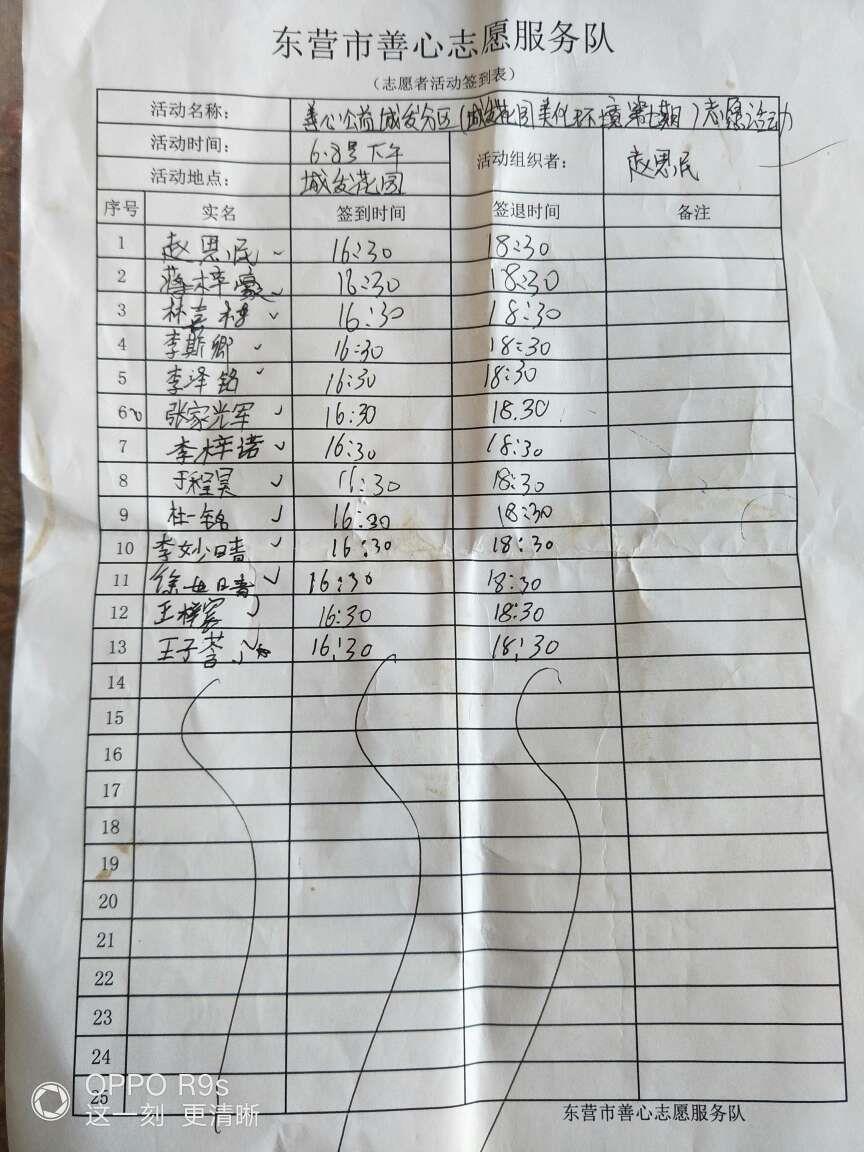 东营市善心志愿服务队
（志愿者活动签到表）
活动名称： 善心公益城发分区（城发花园美化环境第七期）志愿活动
活动时间： 6.8号下午 活动组织者： 赵思民
活动地点： 城发花园
序号 实名 签到时间 签退时间 备注
1 赵思民 16:30 18:30
2 蒋梓豪 16:30 18:30
3 16:30 18:30
4 李斯卿 16:30 18:30
5 李泽铭 16:30 18:30
6 张家光军 16:30 18.30
7 李梓诺 16:30 18:30
8 于程昊 16:30 18:30
9 杜一铭 16:30 18:30
10 李妙晴 16:30 18:30
11 16:30 18:30
12 16:30 18:30
13 王子 16:30 18:30
14
15
16
17
18
19
20
21
22
23
24
25
东营市善心志愿服务队
OPPO R9s
这一刻 更清晰